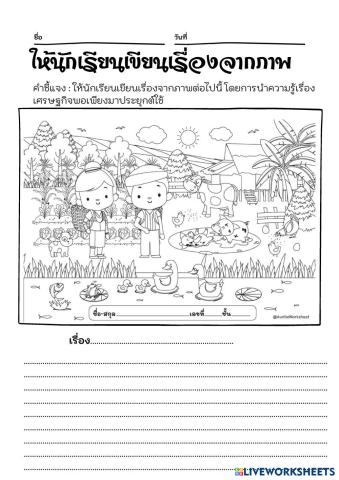 ชื่อ วันที่
ให้นักเรียนเขียนเรื่องจากภาพ
คำชี้แจง : ให้นักเรียนเขียนเรื่องจากภาพต่อไปนี้ โดยการนำความรู้เรื่อง
เศรษฐกิจพอเพียงมาประยุกต์ใช้
ชื่อ-สกุล เลขที่ ชั้น
เรื่อง
LIVEWORKSHEETS